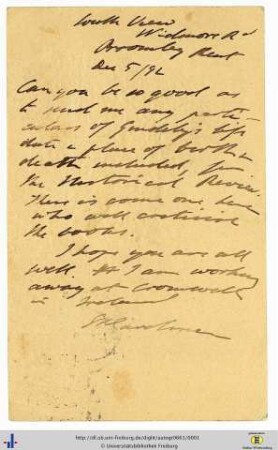 South View
Widmore Rd
Bromley Kent
Dec 5/92
Can you be so good as
to send me any parti-
culars of Gindely's life
date & place of birth &
death included, for
the Historical Review.
There is some one here
who will criticise
the books.
I hope you are all
well. I am working
away at Cromwell
in Ireland
http://dl.ub.uni-freiburg.de/diglit/autogr0661/0001
© Universitätsbibliothek Freiburg